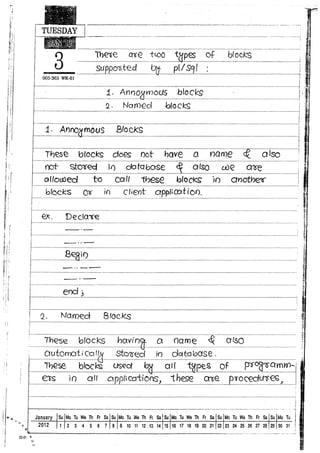 TUESDAY
3
003-363 WK-01
There are two types of blocks
supported by pl/sql :
1. Annoymous blocks
2. Named blocks
1. Annoymous Blocks
These blocks does not have a name & also
not stored in database & also we are
allowed to call these blocks in another
blocks or in client application.
ex. Declare
Begin
end ;
2. Named Blocks
These blocks having a name & also
automatically stored in database.
These blocks used by all types of programm-
ers in all applications, these are procedures,
January Su Mo Tu We Th Fr Sa Su Mo Tu We Th Fr Sa Su Mo Tu We Th Fr Sa Su Mo Tu We Th Fr Sa Su Mo Tu
2012 1 2 3 4 5 6 7 8 9 10 11 12 13 14 15 16 17 18 19 20 21 22 23 24 25 26 27 28 29 30 31